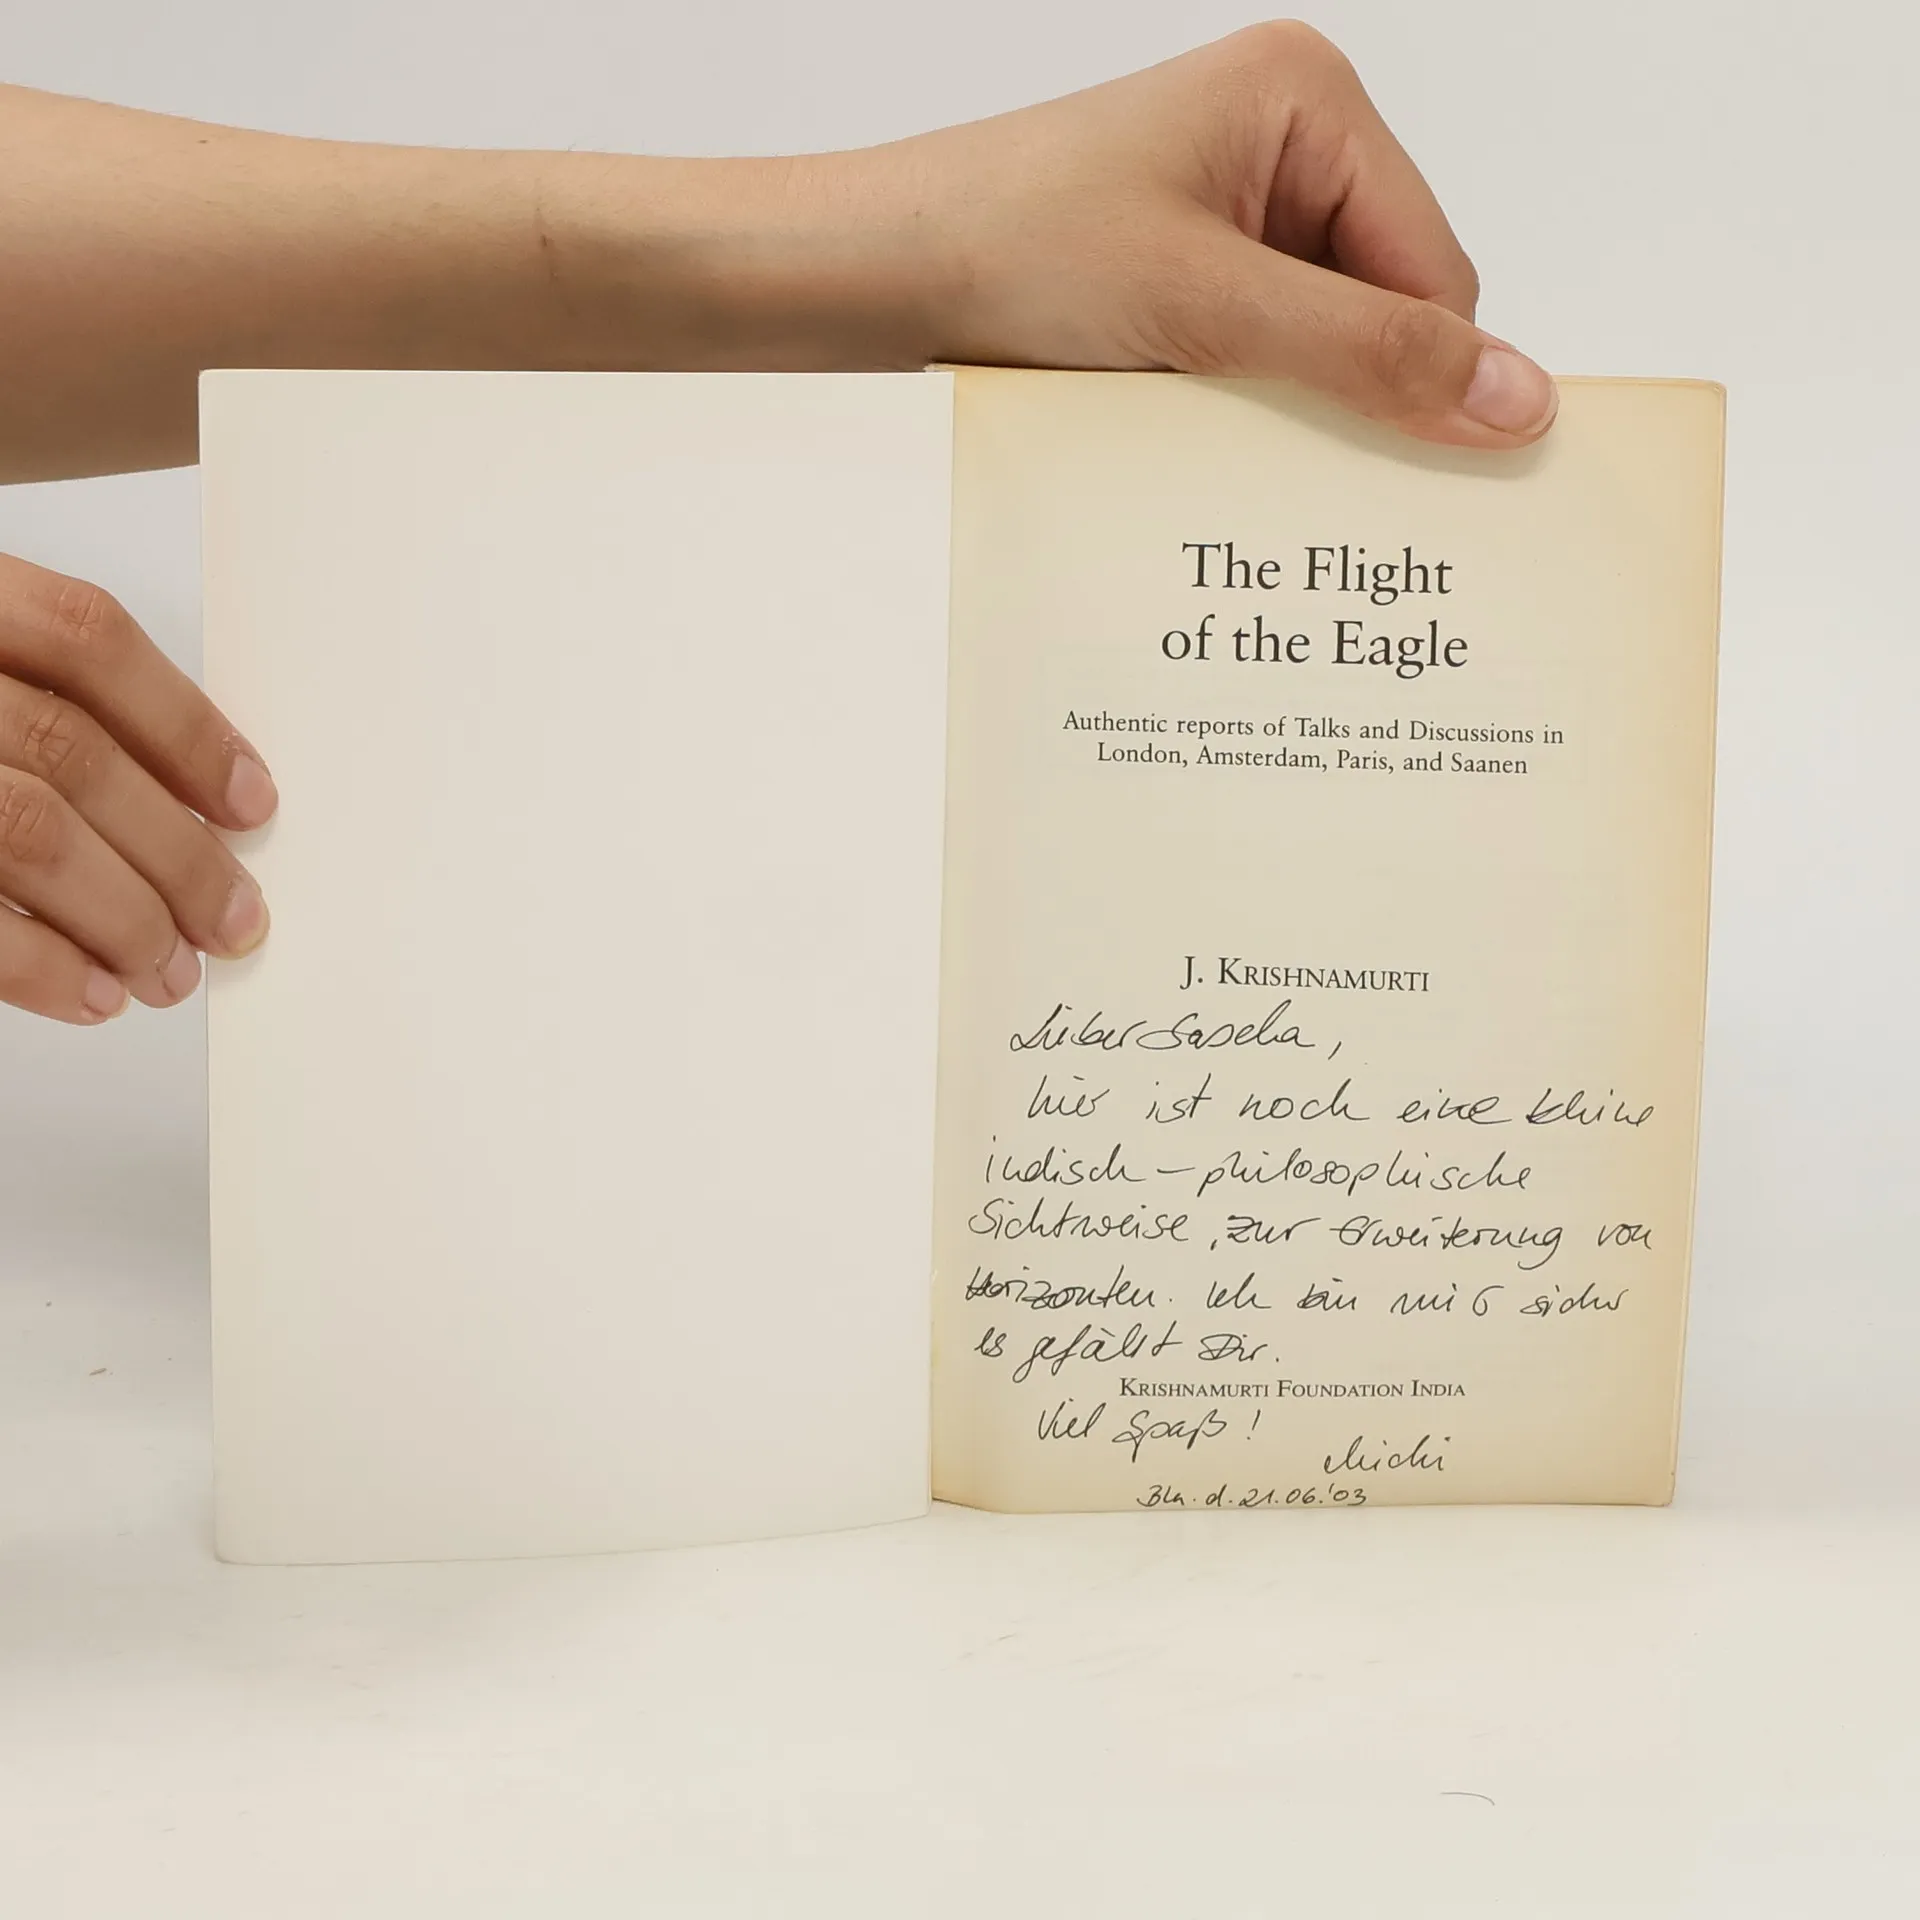 The Flight
of the Eagle
Authentic reports of Talks and Discussions in
London, Amsterdam, Paris, and Saanen
J. KRISHNAMURTI
Lieber Sascha,
hier ist noch eine kleine
indisch-philosophische
Sichtweise, zur Erweiterung von
Horizonten. Ich bin mir sicher
es gefällt Dir.
KRISHNAMURTI FOUNDATION INDIA
Viel Spaß!
Michi
Bln. d. 21.06.'03